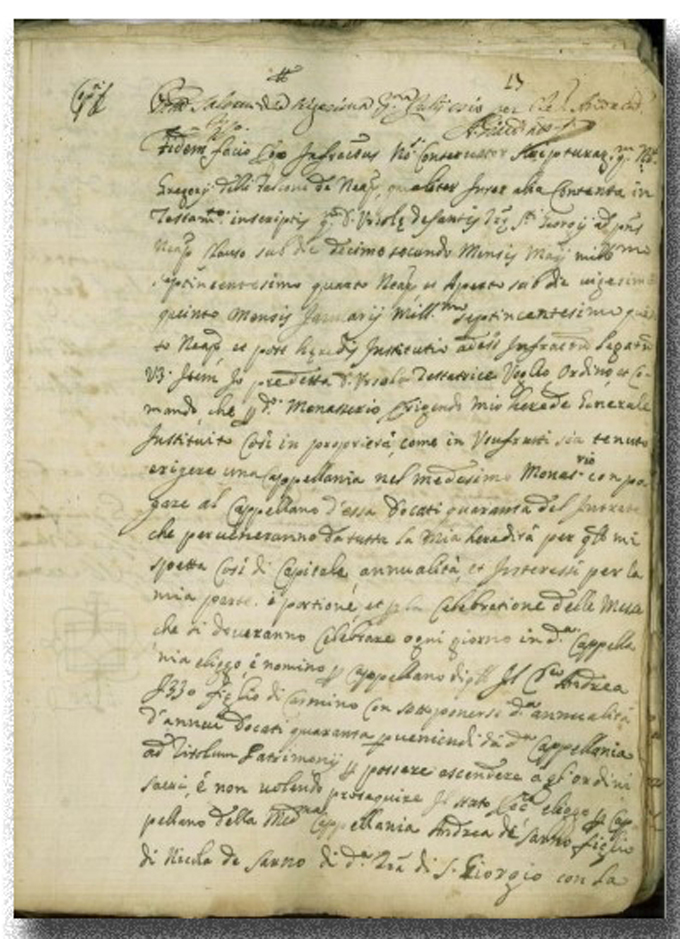 13
Fidem facio Ego Infractus Nos Conservator Scripturar. qm. No.
Gregorij delli Falconi de Neap. qualiter Inter alia Contenta in
Testamto. inscriptis qm. D. Ursole de Santis Sti. Georgij ad
Neap. Clauso sub die decimo secundo Mensis Maij mill.mo
septincentesimo quarto Neap. et Aperto sub die vigesimo
quinto Mensis Januarij Mill.mo septincentesimo quin
to Neap. et post heredis Institutio adest Infractum Legatum
Vz. Item Io predetta D. Ursola Testatrice Voglio, Ordino, et Co-
mando, che Monasterio Erigendo mio herede Generale
Instituito Cosi in proprietà, come in Usufrutti sia tenuto
erigere una Cappellania nel medesimo Monas.rio con pa
gare al Cappellano d'essa Docati quaranta del Intrate
che perveneranno da tutta la Mia heredità per mi
spetta Cosi di Capitale, annualità, et Interessi per la
mia parte, è portione, et la Celebratione delle Messe
che si doveranno Celebrare ogni giorno in d.a Cappella
nia eliggo, è nomino Cappellano di Il Andrea
Izzo figlio di Carmino Con sottoponerse d.a annualità
d'annui Docati quaranta da d.a Cappellania
ad Titolum Patrimonij possere ascendere à gl'ordini
sacri, è non volendo proseguire Il stato eliggo Cap-
pellano della Med.ma Cappellania Andrea de Sarno figlio
di Nicola de Sarno di d.a Trã di S. Giorgio con la